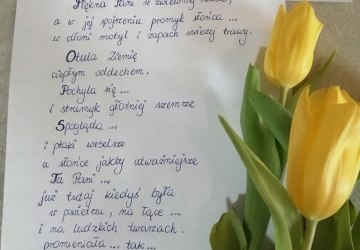 Piękna Pani w zwiewnej
a w jej spojrzeniu promyk słońca ...
w dłoni motyl i zapach świeżej trawy.
Otula Ziemię
ciepłym oddechem.
Pochyla się ...
i strumyk głośniej szemrze
Spogląda ...
i ptaki weselsze
a słońce jakby odważniejsze
Ta Pani ...
już tutaj kiedyś była
w powietrzu, na łące ...
i na ludzkich twarzach.
promieniała ... tak ...